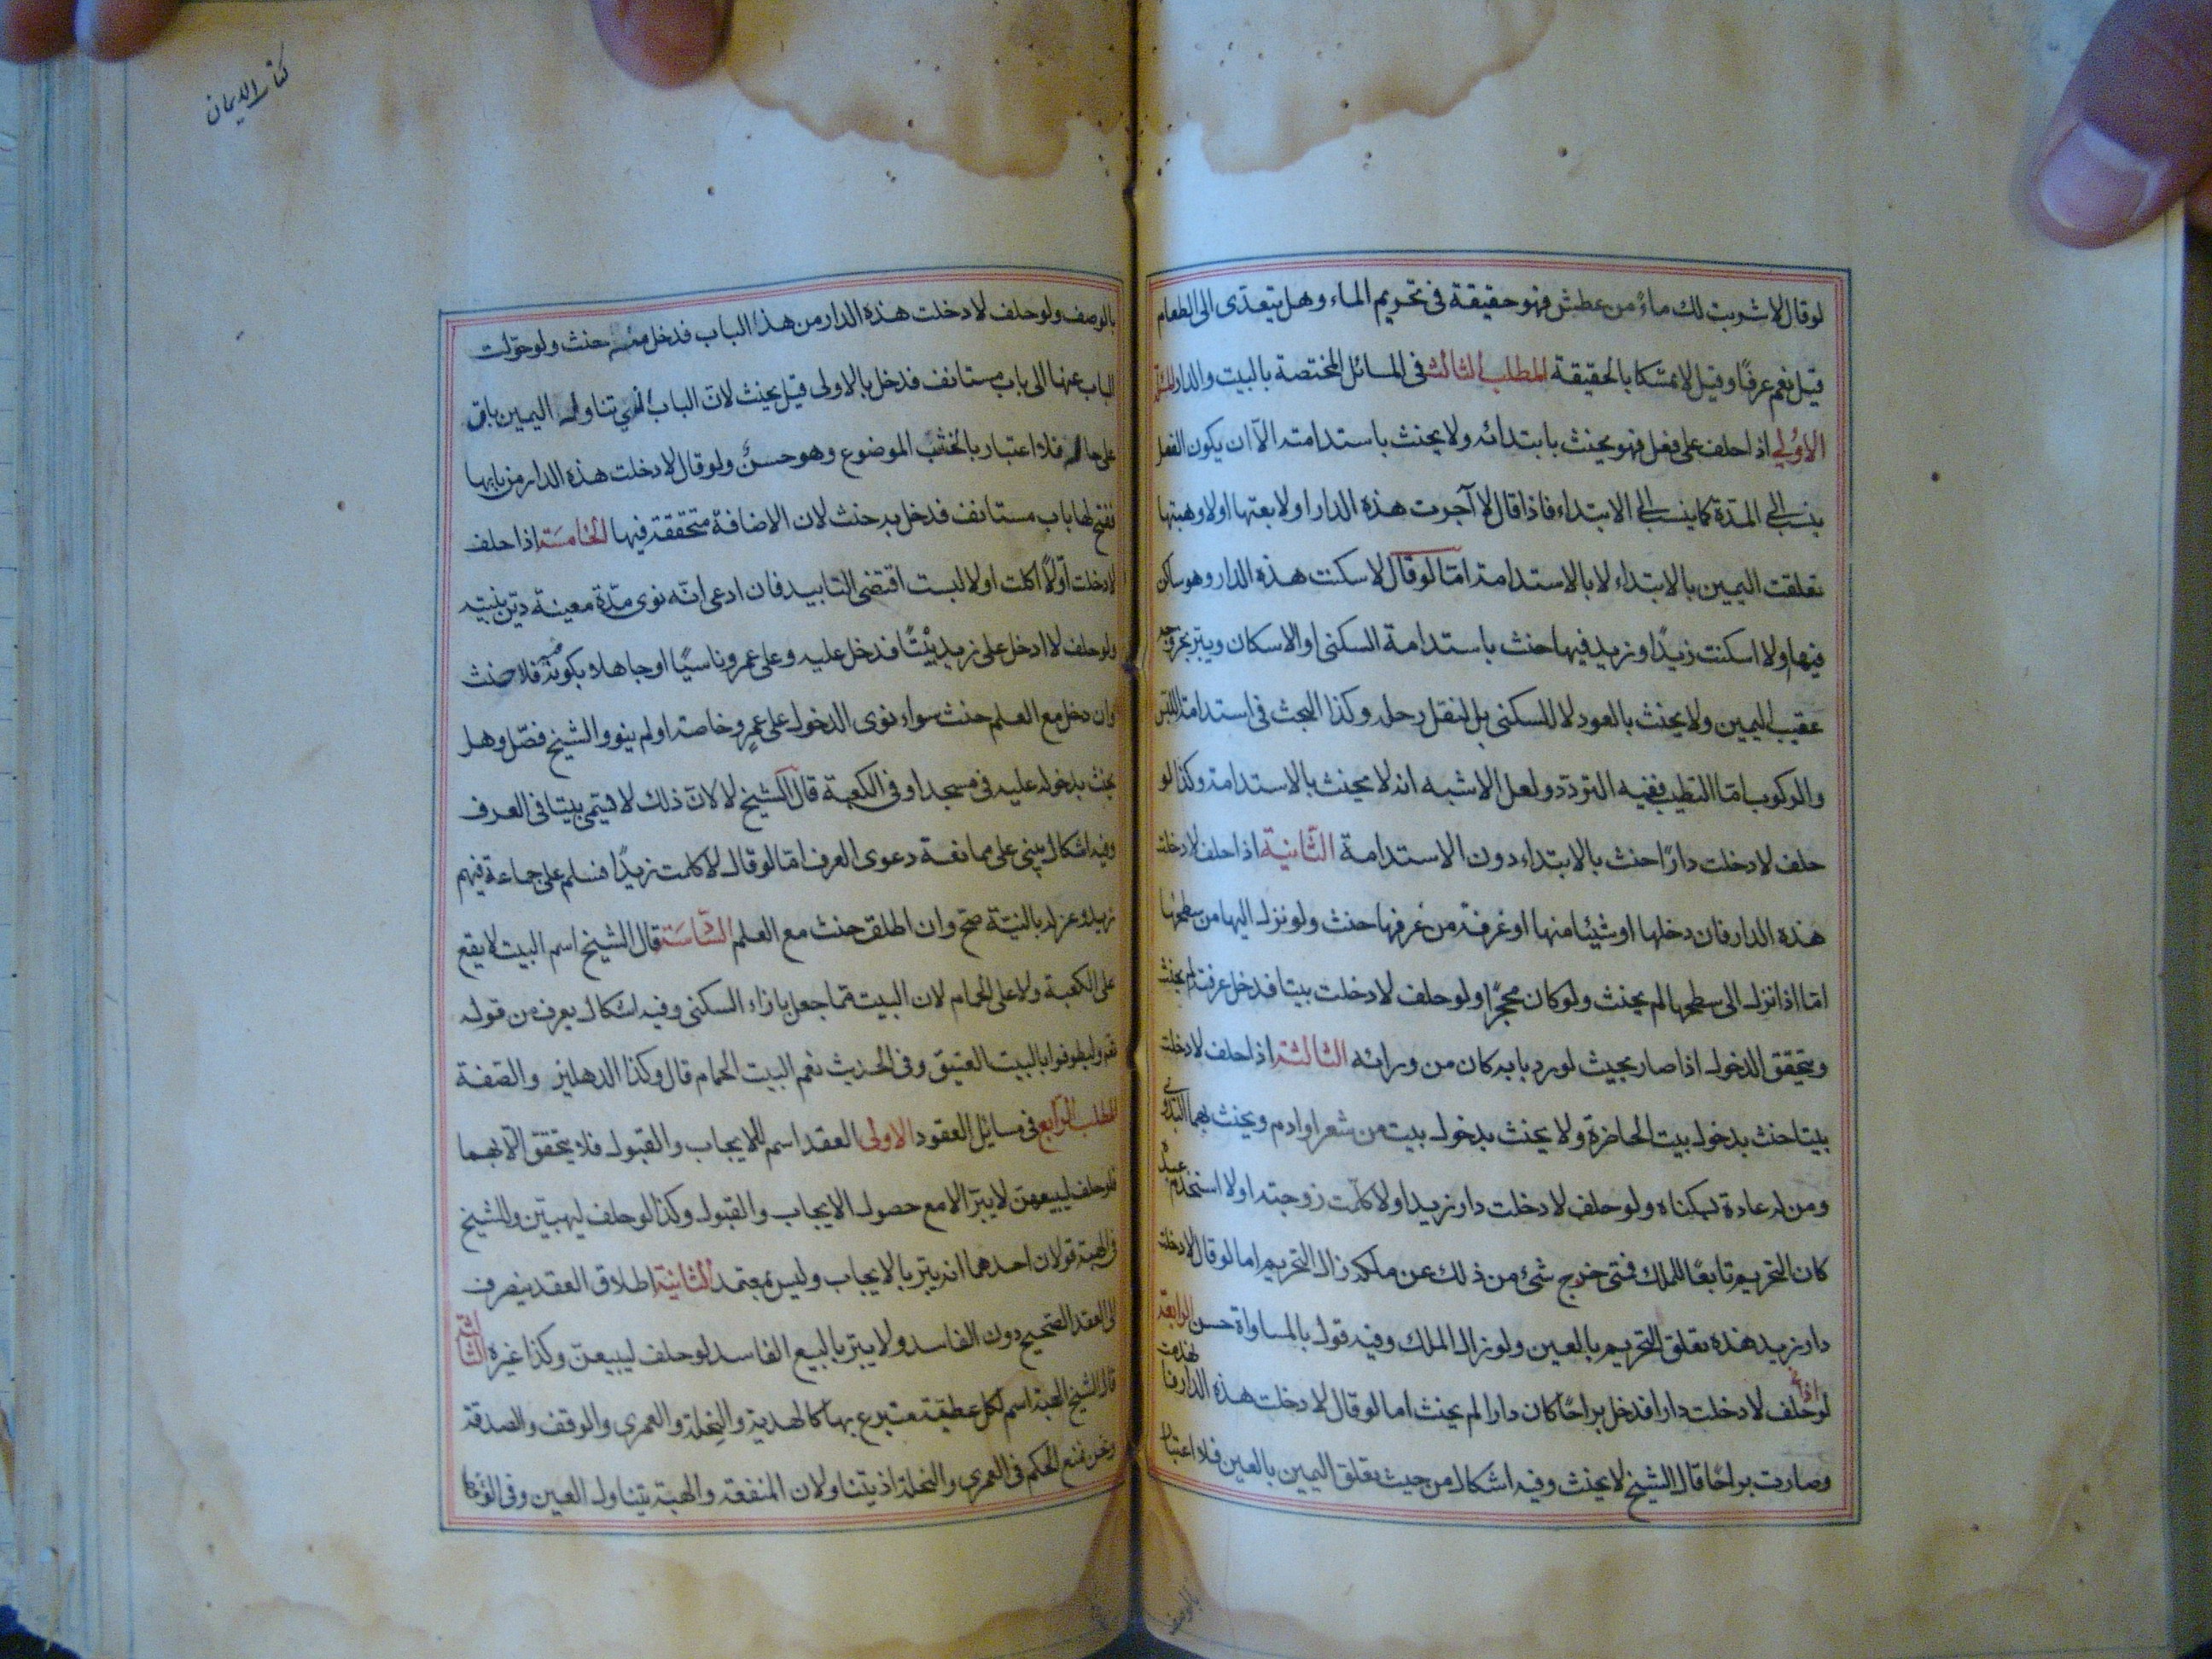 لو قال لا شربت لك ماءً من عطش فهو حقيقة في تحريم الماء وهل يتعدى الى الطعام
قيل نعم عرفًا وقيل لا تمسّكا بالحقيقة المطلب الثالث في المسائل المختصة بالبيت والدار
الاولى اذا حلف على فعل فهو يحنث بابتدائه ولا يحنث باستدامته الا ان يكون الفعل
ينسب الى المدّة كما ينسب الى الابتداء فاذا قال لا آجرت هذه الدار او لا بعتها او لا وهبتها
تعلقت اليمين بالابتداء لا بالاستدامة امّا لو قال لا سكنت هذه الدار وهو ساكن
فيها او لا اسكنت زيدًا وزيد فيها حنث باستدامة السكنى او الاسكان ويبرّ بخروجه
عقيب اليمين ولا يحنث بالعود لا للسكنى بل لنقل رحله وكذا البحث في استدامة اللبس
والركوب امّا التطيب ففيه التردد ولعل الاشبه انه لا يحنث بالاستدامة وكذا لو
حلف لا دخلت دارًا حنث بالابتداء دون الاستدامة الثّانية اذا حلف لا دخلت
هذه الدار فان دخلها او شيئا منها او غرفة من غرفها حنث ولو نزل اليها من سطحها
امّا اذا نزل الى سطحها لم يحنث ولو كان محجّرًا ولو حلف لا دخلت بيتا فدخل غرفة لم يحنث
ويتحقق الدخول اذا صار بحيث لو رد بابه كان من ورائه الثالثة اذا حلف لا دخلت
بيتا حنث بدخول بيت الحاضرة ولا يحنث بدخول بيت من شعر او ادم ويحنث بهما البدوي
ومن له عادة بسكناه ولو حلف لا دخلت دار زيد او لا كلّمت زوجته او لا استخدم عبده
كان التحريم تابعًا للملك فمتى خرج شئ من ذلك عن ملكه زال التحريم اما لو قال لا دخلت
دار زيد هذه تعلق التحريم بالعين ولو زال الملك وفيه قول بالمساواة حسن الرابعة
اذا
لو حلف لا دخلت دارا فدخل براحًا كان دارا لم يحنث اما لو قال لا دخلت هذه الدار فانهدمت
وصارت براحًا قال الشيخ لا يحنث وفيه اشكال من حيث تعلق اليمين بالعين فلا اعتبار
بالوصف
كتاب الايمان
بالوصف ولو حلف لا دخلت هذه الدار من هذا الباب فدخل منه حنث ولو حوّلت
الباب عنها الى باب مستانف فدخل بالاولى قيل يحنث لانّ الباب الذي تناوله اليمين باق
على حاله فلا اعتبار بالخشب الموضوع وهو حسنٌ ولو قال لا دخلت هذه الدار من بابها
ففتح لها باب مستانف فدخل به حنث لان الاضافة متحققة فيها الخامسة اذا حلف
لا دخلت او لا اكلت او لا لبست اقتضى التابيد فان ادعى انّه نوى مدّة معينة ديّن بنيته
ولو حلف لا ادخل على زيد بيتًا فدخل عليه وعلى عمرو ناسيًا او جاهلا بكونه فيه فلا حنث
وان دخل مع العلم حنث سواء نوى الدخول على عمرٍو خاصة او لم ينو والشيخ فصّل وهل
يحنث بدخوله عليه في مسجد او في الكعبة قال الشيخ لا لانّ ذلك لا يسمى بيتا في العرف
وفيه اشكال يبنى على ممانعة دعوى العرف امّا لو قال لا كلمت زيدًا فسلم على جماعة فيهم
زيد وعزله بالنيّة صحّ وان اطلق حنث مع العلم السّادسة قال الشيخ اسم البيت لا يقع
على الكعبة ولا على الحمام لان البيت ما جعل بازاء السكنى وفيه اشكال يعرف من قوله
تعالى وليطوفوا بالبيت العتيق وفي الحديث نعم البيت الحمام قال وكذا الدهليز والصّفة
المطلب الرّابع في مسائل العقود الاولى العقد اسم للايجاب والقبول فلا يتحقق الّا بهما
فلو حلف ليبيعنّ لا يبرّ الا مع حصول الايجاب والقبول وكذا لو حلف ليهبنّ وللشيخ
في الهبة قولان احدهما انه يبرّ بالايجاب وليس بمعتمد الثّانية اطلاق العقد ينصرف
الى العقد الصّحيح دون الفاسد ولا يبرّ بالبيع الفاسد لو حلف ليبيعنّ وكذا غيره الثالثة
قال الشيخ الهبة اسم لكل عطيّة متبرع بها كالهدية والنحلة والعمرى والوقف والصدقة
ونحن نمنع الحكم في العمرى والنحلة اذ يتناولان المنفعة والهبة يتناول العين وفي الوقف